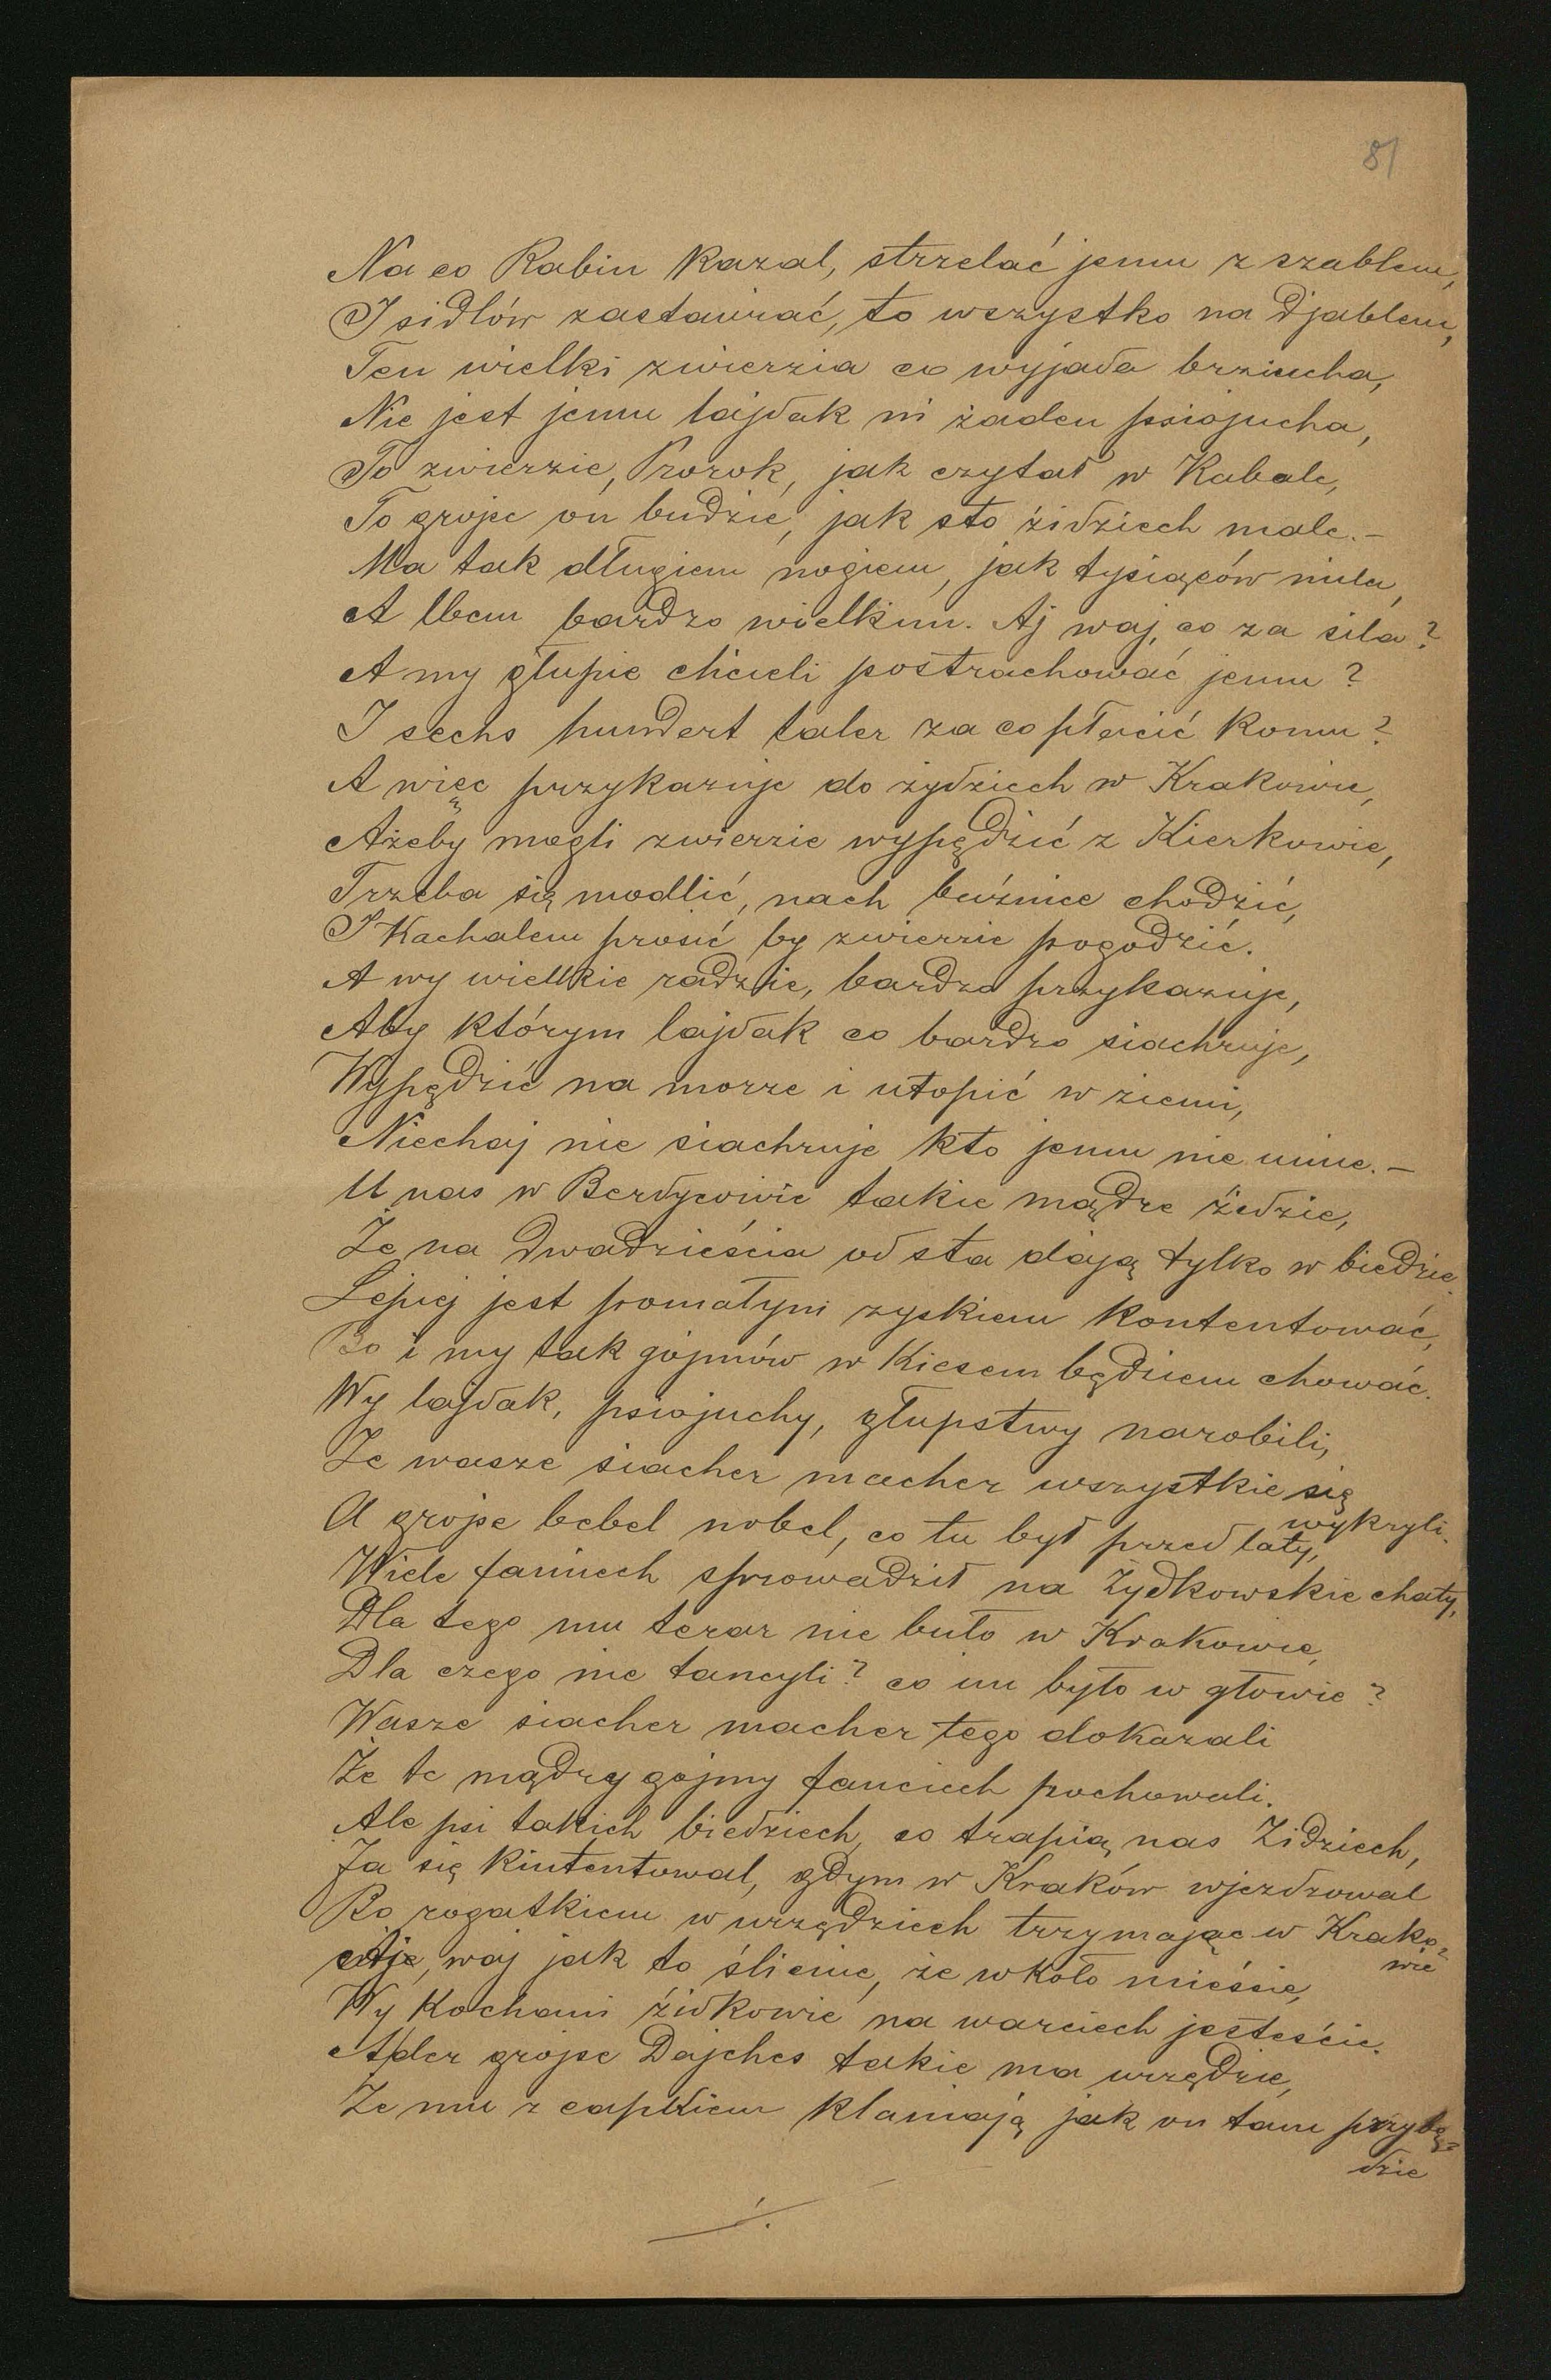 81
Na co Rabin kazal, strzelać jemu z szablem,
I sidlów zastawiać, to wszystko na Djablem,
Ten wielki zwierzia co wyjada brziucha,
Nie jest jemu lajdak ni żaden psiajucha,
To zwierzie, Prorok, jak czytał w Kabale,
To grojse on budzie, jak sto żidziech male.–
Ma tak długiem nogiem, jak tysiąców mila,
A lbem bardzo wielkim. Aj waj, co za sila?
A my głupie chcieli postrachować jemu?
I sechs hundert taler za co płacić komu?
A więc przykazuje do żydziech w Krakowie,
Ażeby mogli zwierzie wypędzić z Kierkowie,
Trzeba się modlić, nach buźnice chodzić,
I Kachalem prosić by zwierzie pogodzić.
A wy wielkie radzie, bardzo przykazuje,
Aby którym lajdak co bardzo siachruje,
Wypędzić na morze i utopić w ziemi,
Niechaj nie siachruje kto jemu nie umie.–
U nas w Berdycowie takie mądre żidzie,
Że na dwadzieścia od sta dają tylko w biedzie.
Lepiej jest pomałym zyskiem kontentować,
Bo i my tak gojmów w Kiesem będziem chować.
Wy lajdak, psiajuchy, głupstwy narobili,
Że wasze siacher macher wszystkie się
wykryli.
A grojse bebel nobel, co tu był przed laty,
Wiele faniech sprowadził na Żydkowskie chaty,
Dla tego mu teraz nie buło w Krakowie,
Dla czego nie tancyli? co im było w głowie?
Wasze siacher macher tego dokazali
Że te mądry gojmy fanciech pochowali.
Ale psi takich biedziech, co trapią nas Żidziech,
Ja się kintentowal, gdym w Kraków wjezdzowal
Bo rogatkiem w urzędziech trzymając w Krako-
wie
Aje, waj jak to ślicnie, że wkoło mieście,
Wy Kochani żidkowie na warciech jesteście.
Ader grojse Dajches takie ma urzędzie,
Że mu z capkiem klaniają jak on tam przybę-
dzie